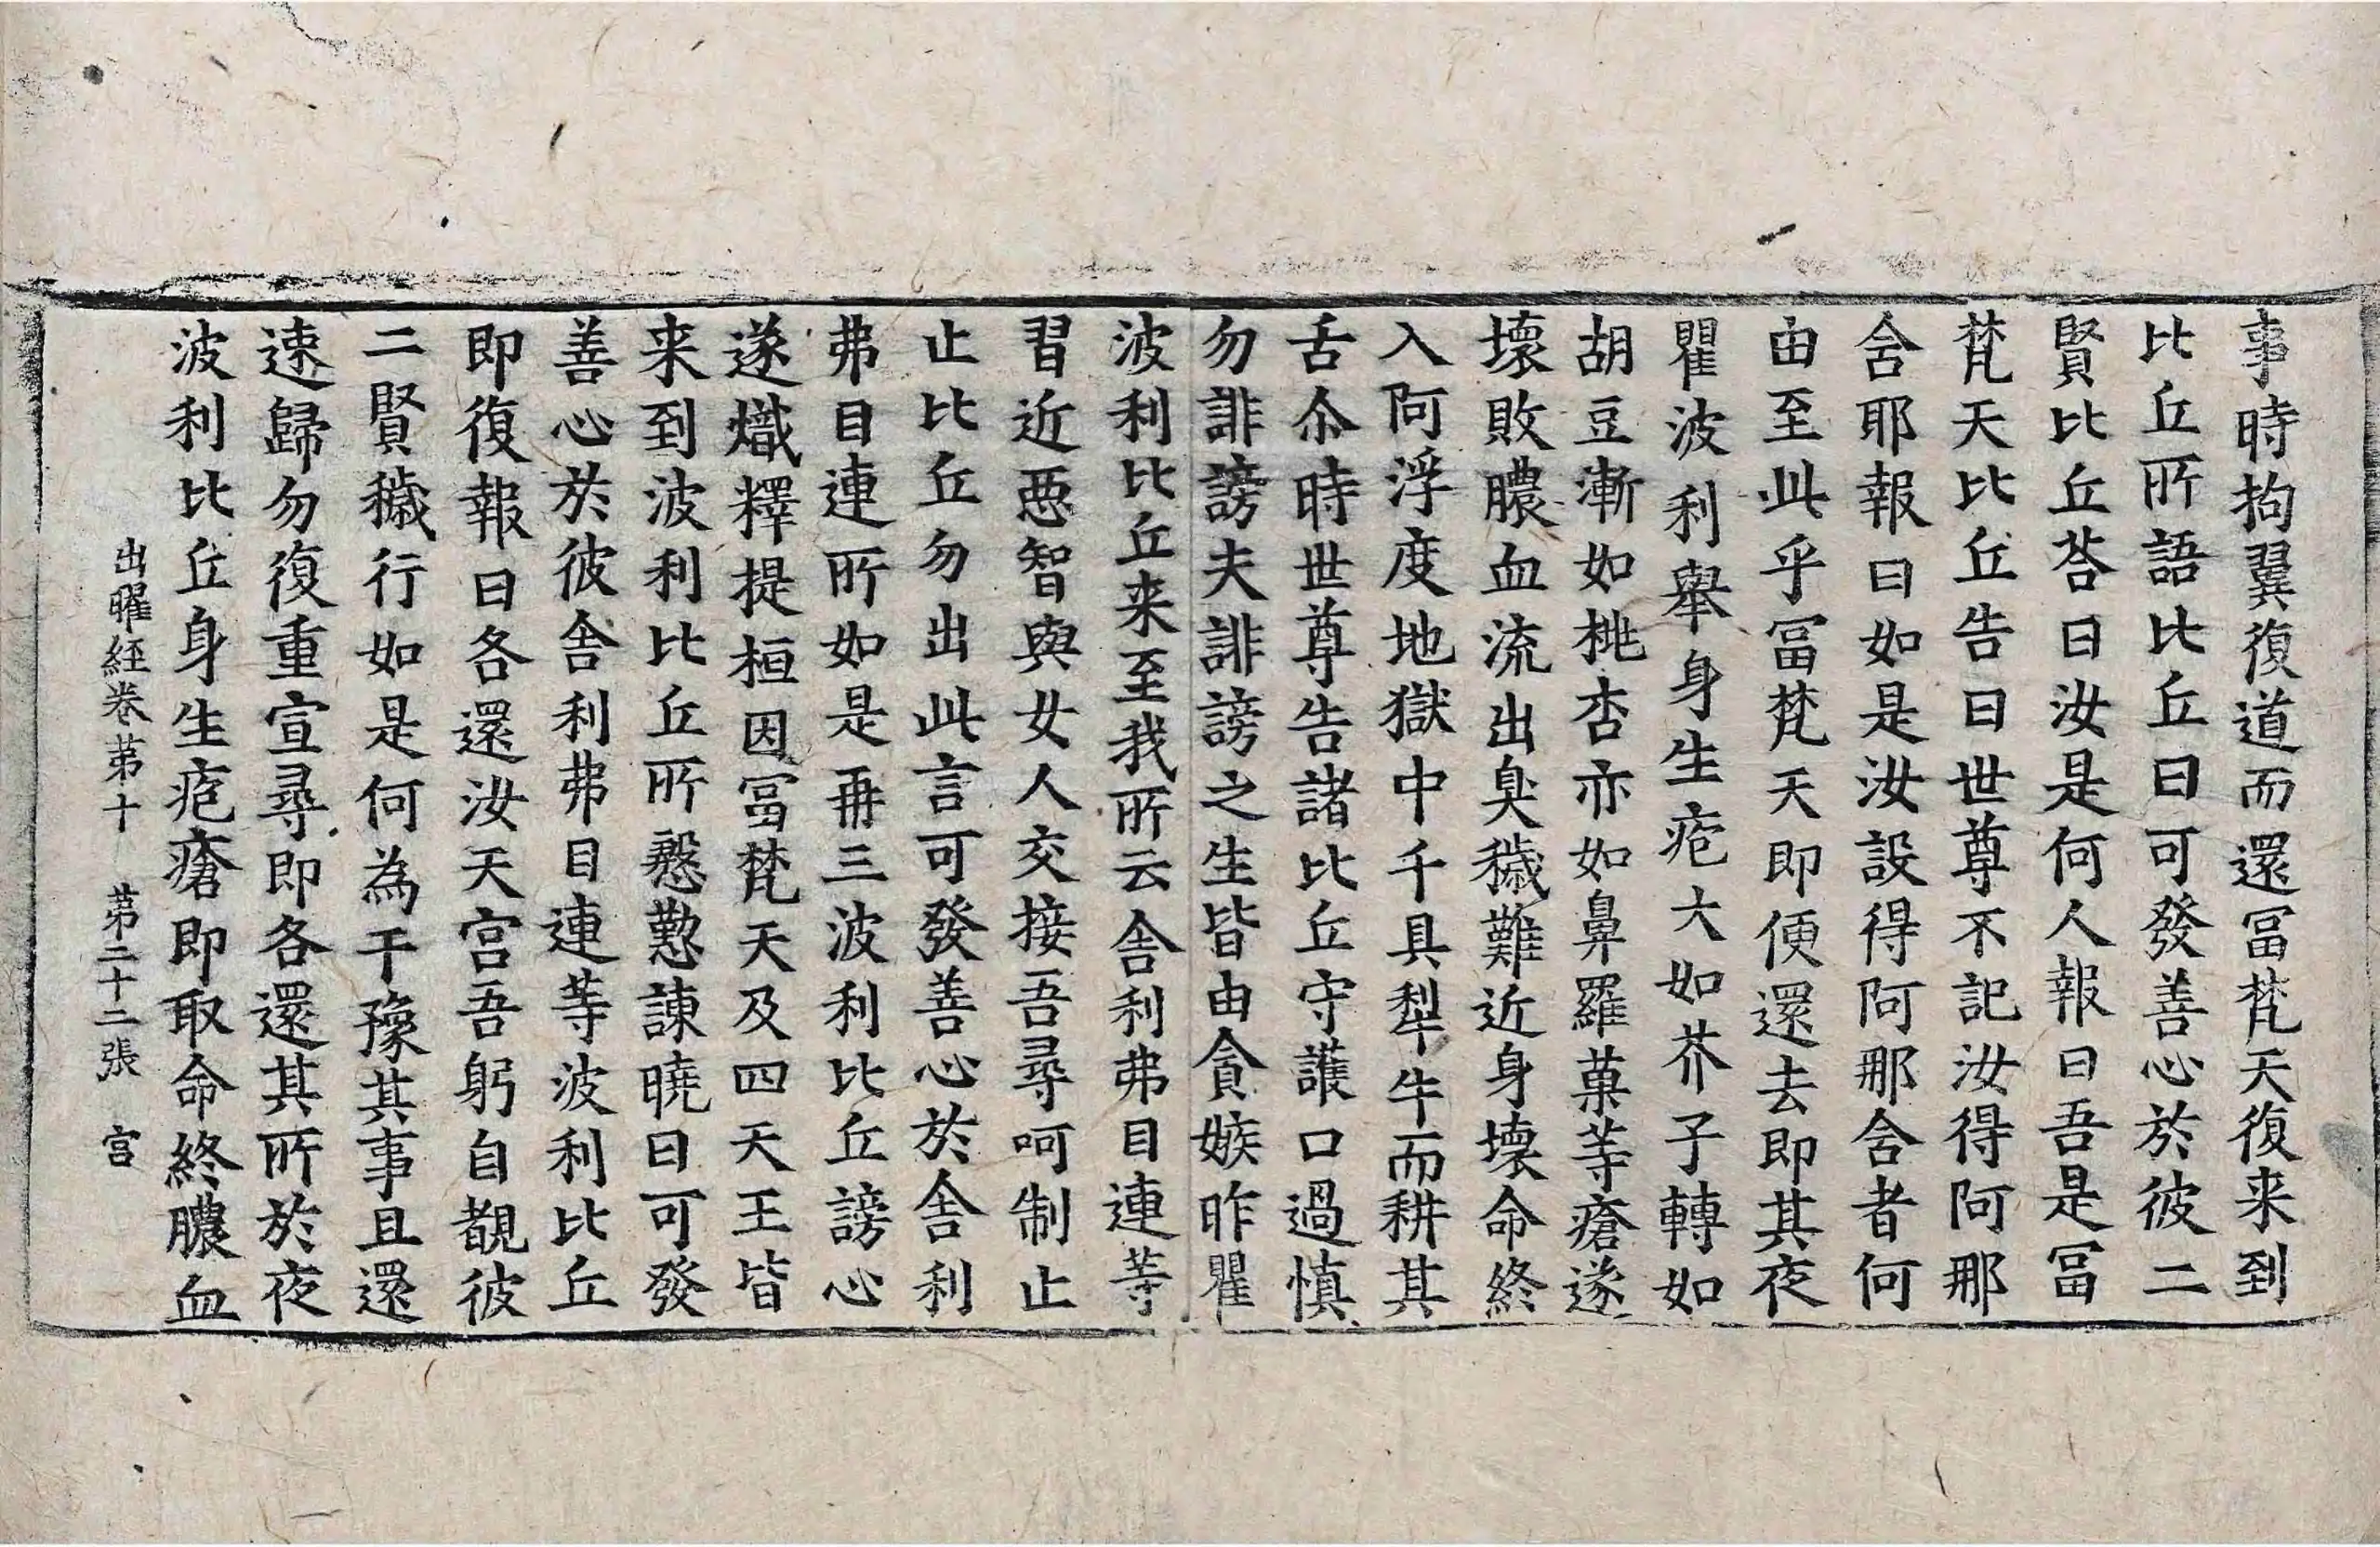 事時拘翼復道而還冨梵天復来到
比丘所語比丘曰可發善心於彼二
賢比丘荅曰汝是何人報曰吾是冨
梵天比丘告曰世尊不記汝得阿那
含耶報曰如是汝設得阿那含者何
由至此乎冨梵天即便還去即其夜
瞿波利舉身生疱大如芥子轉如
胡豆漸如桃杏亦如鼻羅菓等瘡遂
壞敗膿血流出臭穢難近身壞命終
入阿浮度地獄中千具犁牛而耕其
舌尒時世尊告諸比丘守護口過慎
勿誹謗夫誹謗之生皆由貪嫉昨瞿
波利比丘来至我所云舍利弗目連等
習近惡智與女人交接吾尋呵制止
止比丘勿出此言可發善心於舍利
弗目連所如是再三波利比丘謗心
遂熾釋提桓因冨梵天及四天王皆
来到波利比丘所慇懃諫曉曰可發
善心於彼舍利弗目連等波利比丘
即復報曰各還汝天宮吾躬自覩彼
二賢穢行如是何為干豫其事且還
速歸勿復重宣尋即各還其所於夜
波利比丘身生疱瘡即取命終膿血
出曜經卷苐十 苐二十二張 宫